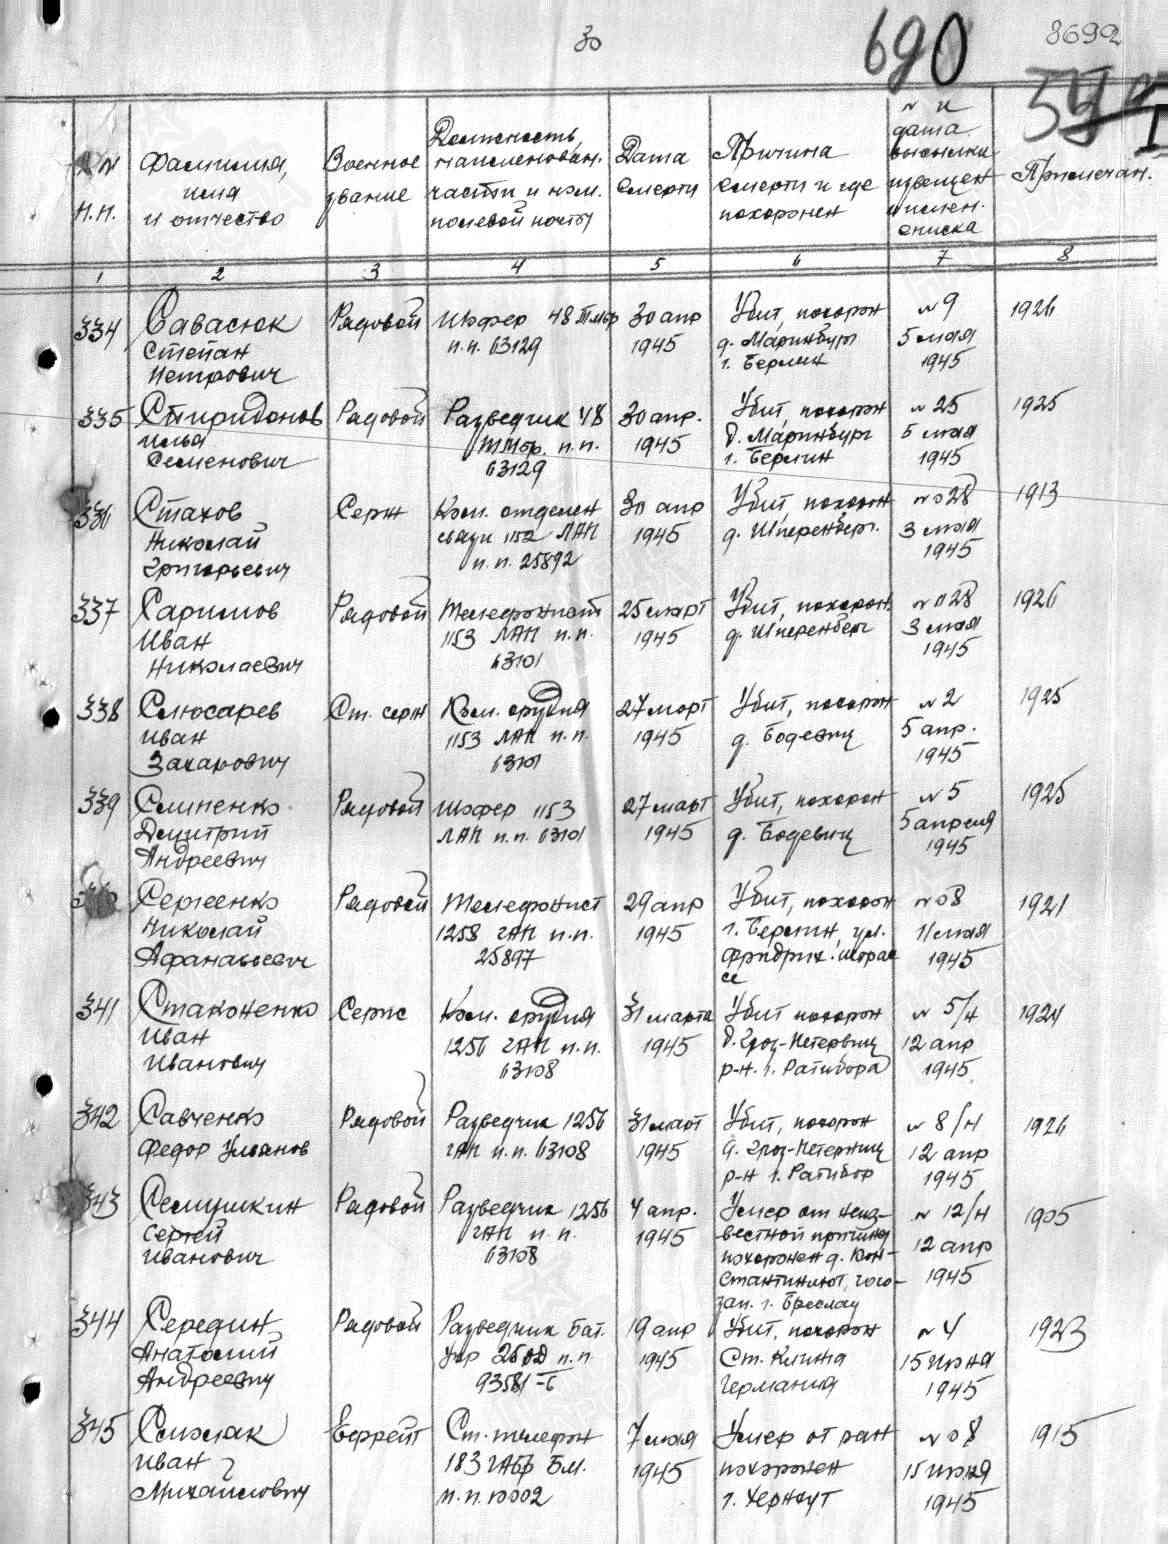 30
690
8692
№№
п.п.
Фамилия,
имя
и отчество
Военное
звание
Должность,
наименован.
части и ном.
полевой почты
Дата
смерти
Причина
смерти и где
похоронен
№ и
дата
высылки
извещен
имен.
списка
Примечан.
1 2 3 4 5 6 7 8
334 Савасюк Рядовой Шофер 48 ТМбр 30 апр Убит, похорон № 9 1926
Степан п.п. 63129 1945 д. Маринбург 5 мая
Петрович г. Берлин 1945
335 Спиридонов Рядовой Разведчик 48 30 апр. Убит, похорон № 25 1925
Илья ТМбр. п.п. 1945 д. Маринбург 5 мая
Семенович 63129 г. Берлин 1945
336 Стахов Серж Ком. отделен 30 апр Убит, похорон № 028 1913
Николай связи 1152 ЛАП 1945 д. Шперенберг. 3 мая
Григорьевич п.п. 25892 1945
337 Саримов Рядовой Телефонист 25 март Убит, похорон № 028 1926
Иван 1153 ЛАП п.п. 1945 д. Шперенберг 3 мая
Николаевич 63101 1945
338 Слюсарев Ст. серж Ком. орудия 27 март Убит, похорон № 2 1925
Иван 1153 ЛАП п.п. 1945 д. Бодевиц 5 апр.
Захарович 63101 1945
339 Слипенко Рядовой Шофер 1153 27 март Убит, похорон № 5 1925
Дмитрий ЛАП п.п. 63101 1945 д. Бодевиц 5 апреля
Андреевич 1945
Сергеенко Рядовой Телефонист 29 апр Убит, похорон № 08 1921
Николай 1258 ГАП п.п. 1945 г. Берлин, ул. 11 мая
Афанасьевич 25897 Фридрих. штрас 1945
се
341 Стаконенко Серж Ком. орудия 31 марта Убит похорон № 5/н
Иван 1256 ГАП п.п. 1945 д. Гроз-Петервиц 12 апр
Иванович 63108 р-н. г. Ратибора 1945
342 Савченко Рядовой Разведчик 1256 31 март Убит, похорон № 8/н 1926
Федор Ульянов ГАП п.п. 63108 1945 д. Гроз-Петервиц 12 апр
р-н г. Ратибор 1945
343 Семушкин Рядовой Разведчик 1256 4 апр. Умер от неиз- № 12/н 1905
Сергей ГАП п.п. 1945 вестной причины 12 апр
Иванович 63108 похоронен д. Кон- 1945
зап. г. Бреслау
344 Середин Рядовой Разведчик Бат. 19 апр Убит, похорон № 4 1923
Анатолий Упр 26 АД п.п 1945 Ст. Клинга 15 июня
Андреевич 93581-Б Германия 1945
345 Сизмак Ефрейт Ст. телефон 7 мая Умер от ран № 08 1915
Иван 183 ГАБр БМ. 1945 похоронен 15 июня
Михайлович п.п. 10002 г. Хернсут 1945